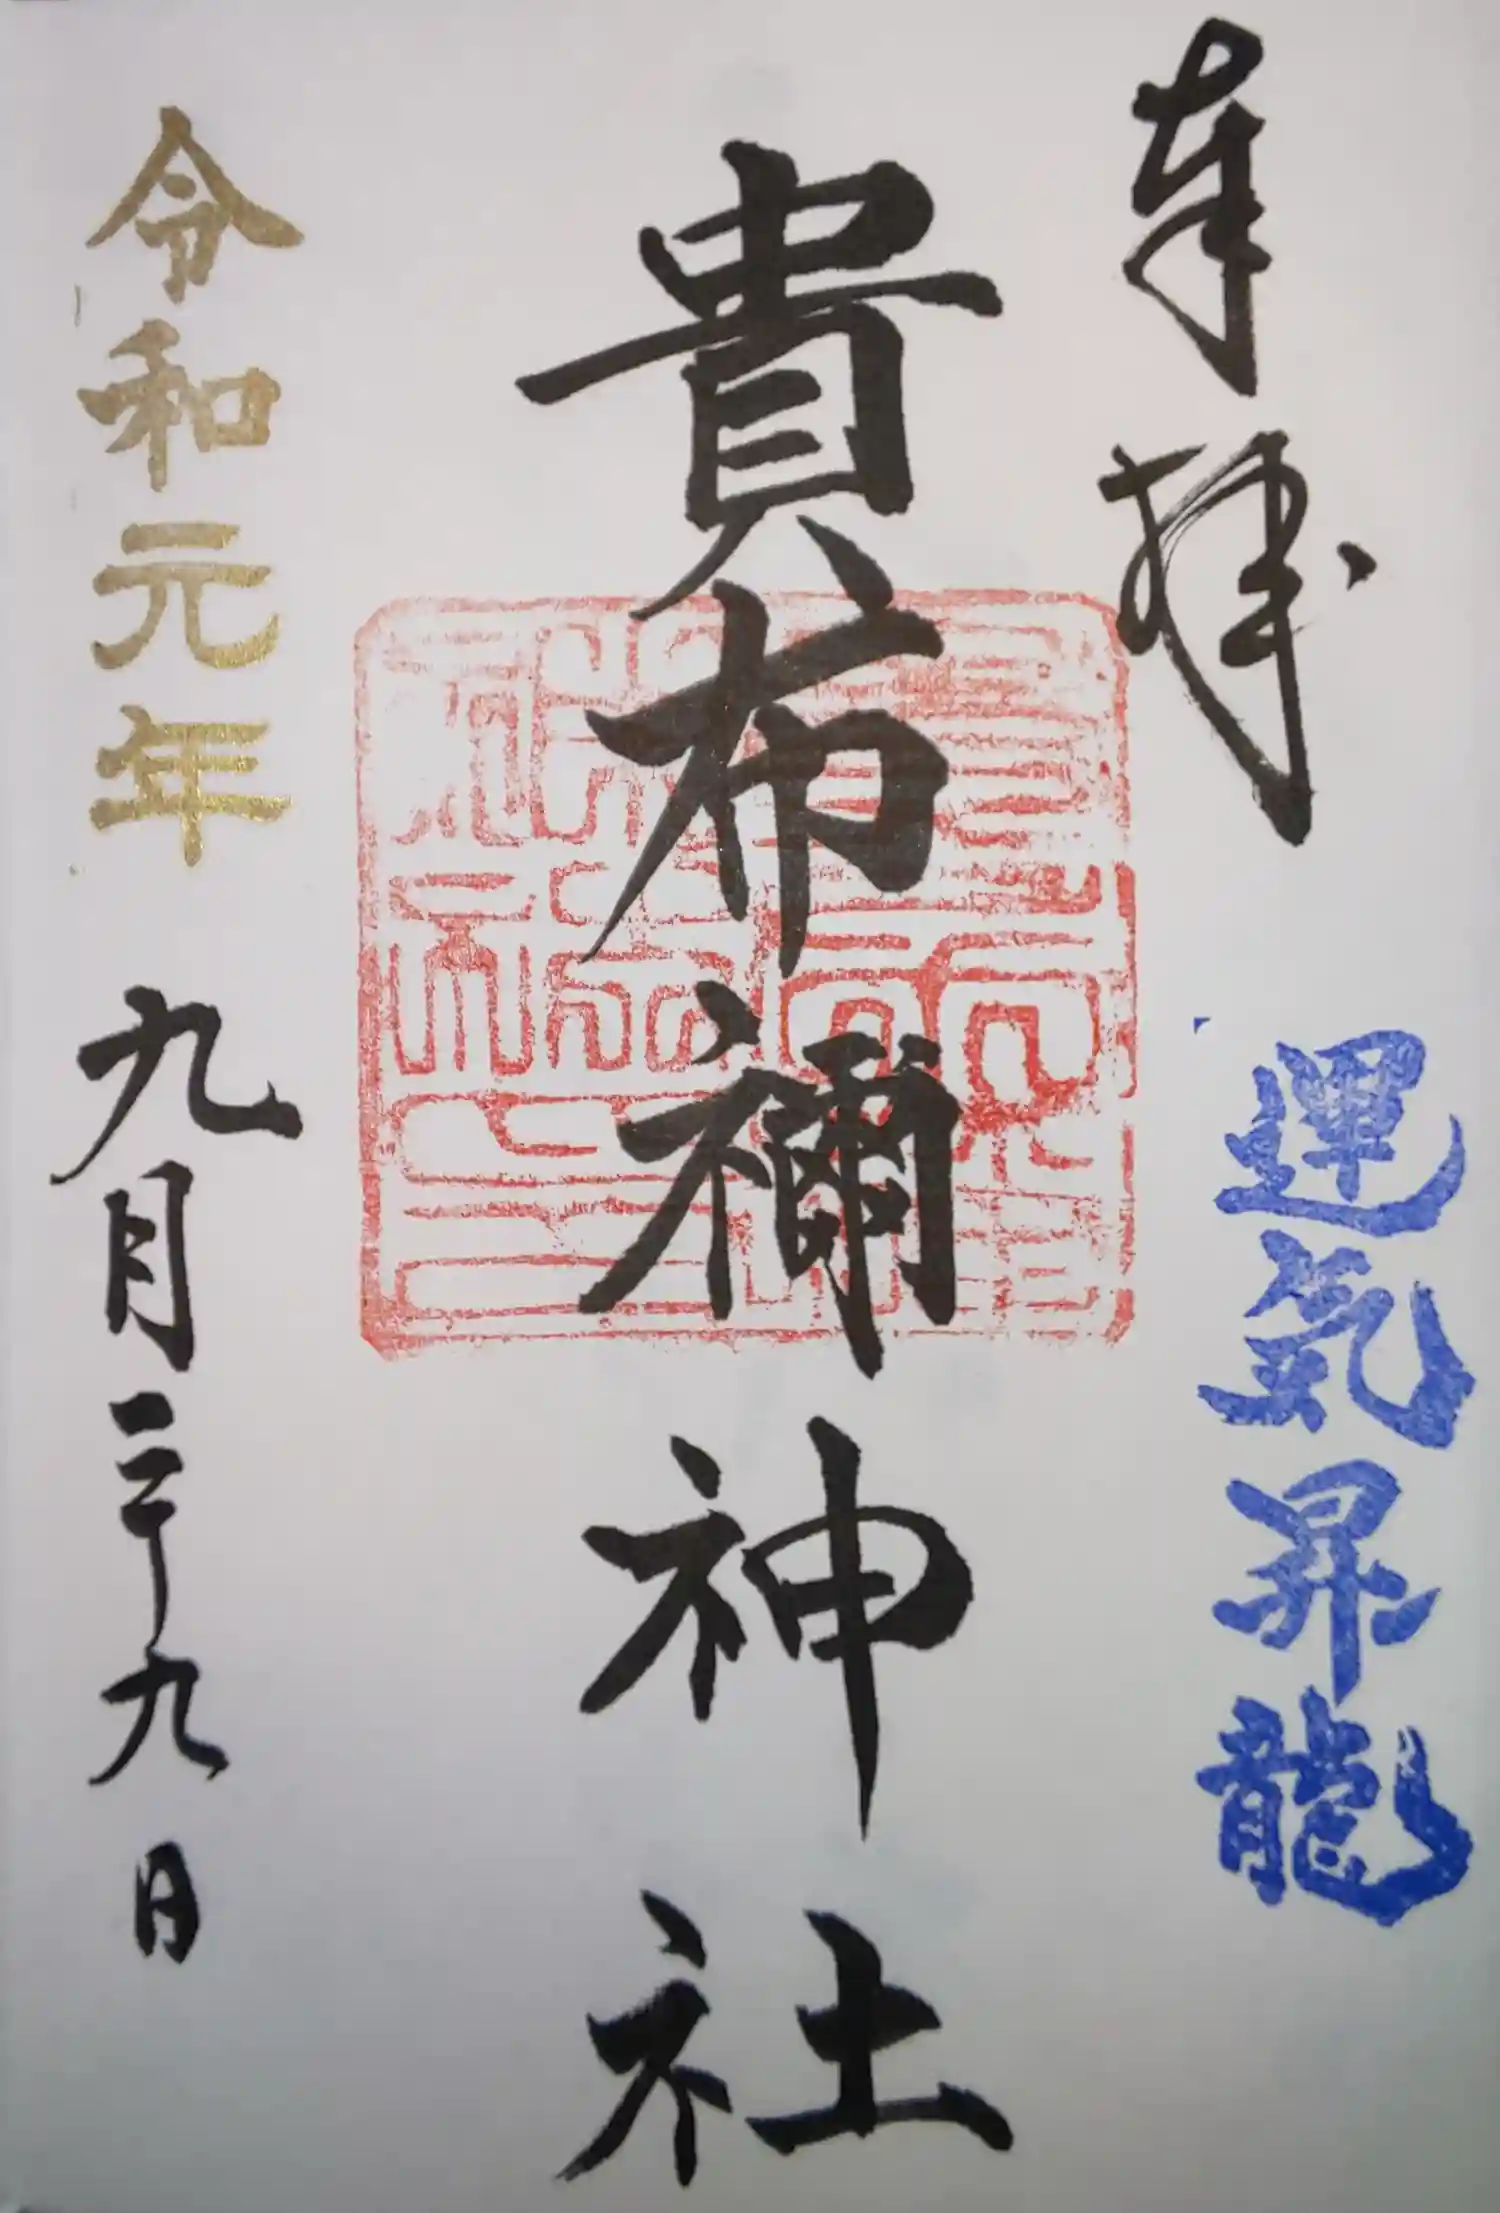 奉拝
運氣昇龍
貴布禰神社
令和元年九月二十九日